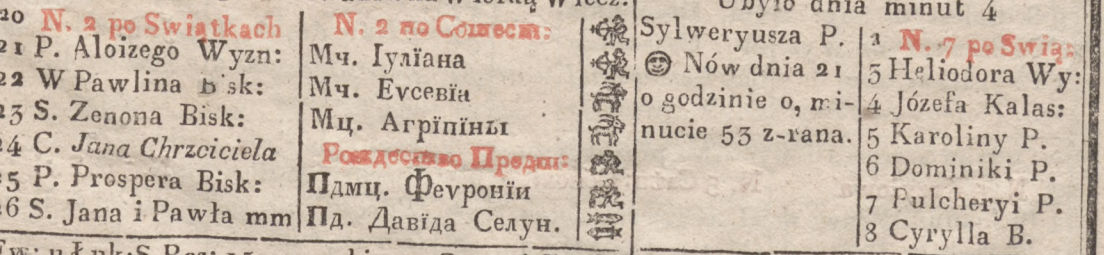 Ubyło dnia minut 4
20 N. 2 po Swiątkach
21 P. Aloizego Wyzn:
22 W Pawlina Bisk:
23 S. Zenona Bisk:
24 C. Jana Chrzciciela
25 P. Prospera Bisk:
26 S. Jana i Pawła mm
N. 2 по Сошест:
Мч. Іулїана
Мч. Еѵсевїа
Мц. Агрїпїны
Рождество Предт:
Пдмц. Феѵронїи
Пд. Давїда Селун.
Sylweryusza P.
Nów dnia 21
o godzinie 0, mi-
nucie 53 z-rana.
2 N. 7 po Swią:
3 Heliodora Wy:
4 Józefa Kalas:
5 Karoliny P.
6 Dominiki P.
7 Pulcheryi P.
8 Cyrylla B.